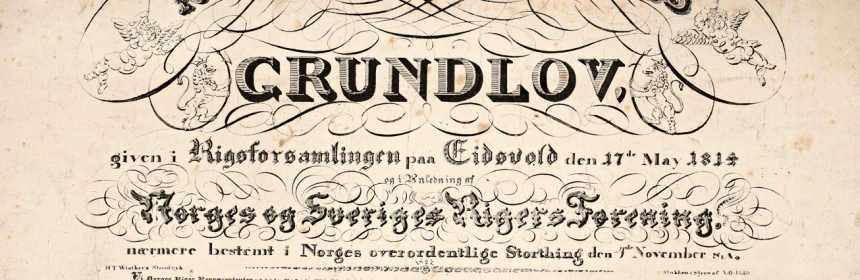 GRUNDLOV,
given i Rigsforsamlingen paa Eidsvold den 17de May 1814
og i Anledning af
Norges og Sveriges Rigers Forening,
nærmere bestemt i Norges overordentlige Storthing den 4de November s. A.
H T Winthers Steentryk.